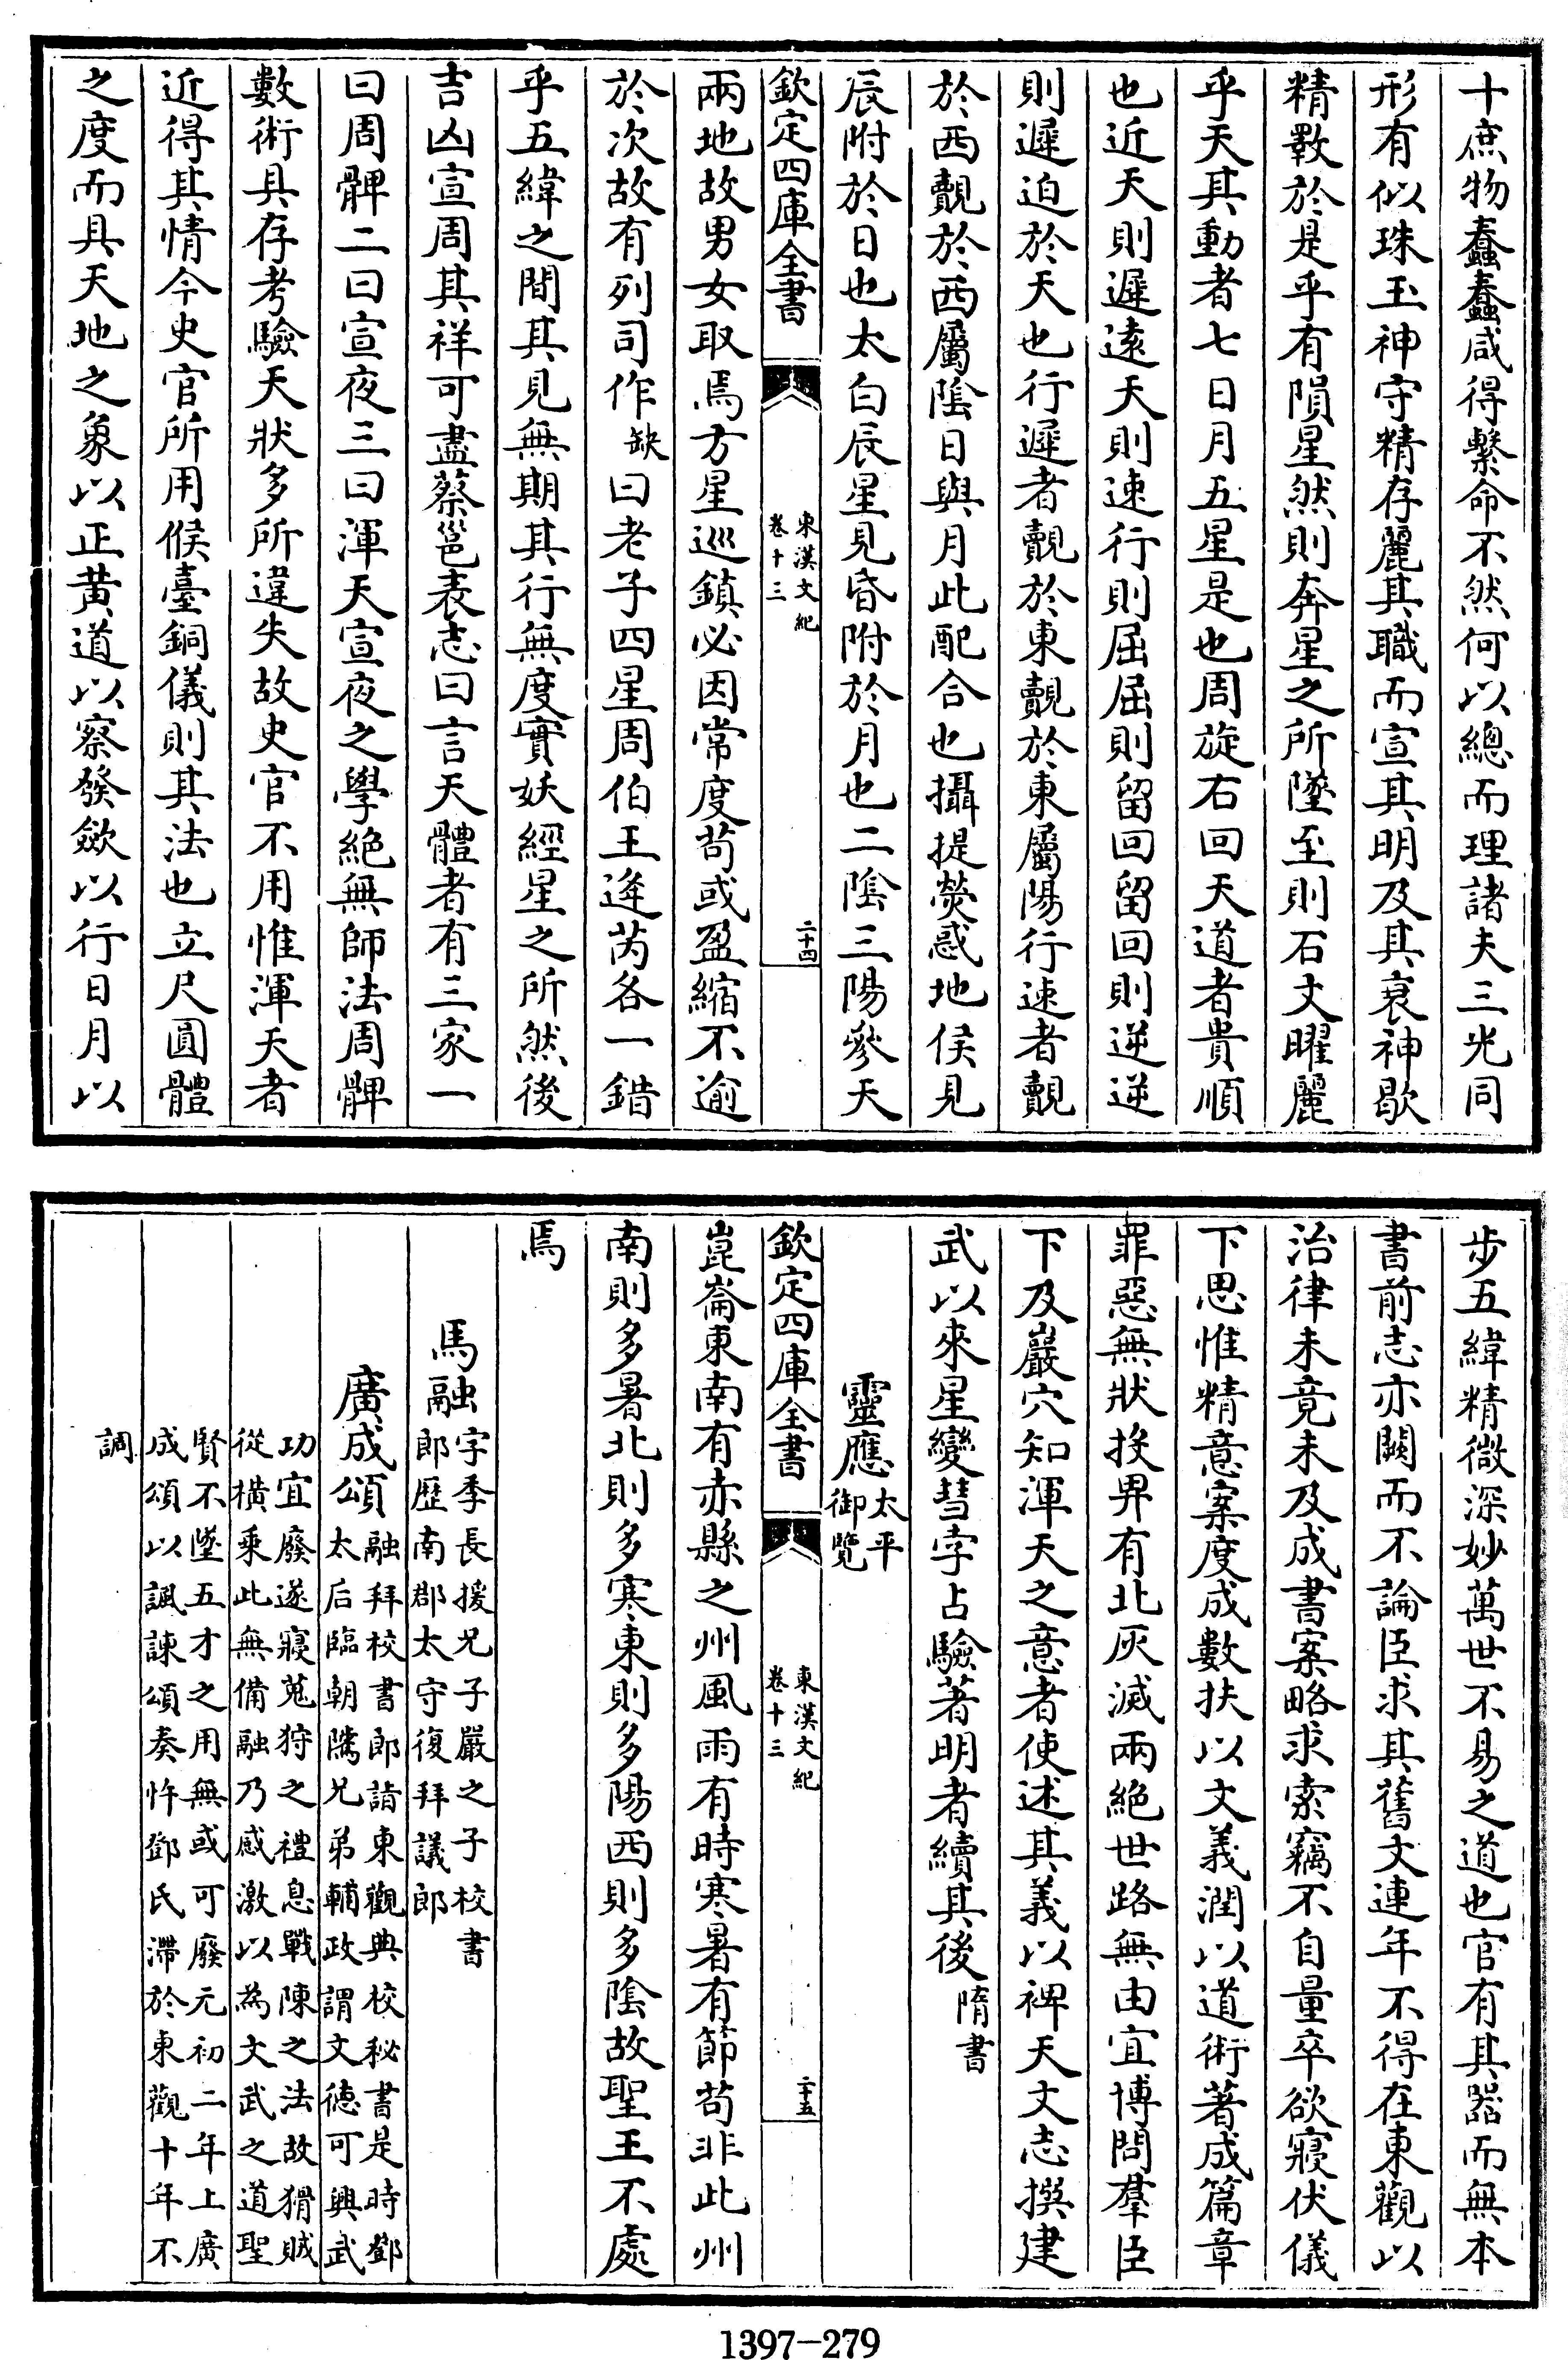 十庶物蠢蠢咸得繫命不然何以總而理諸夫三光同
形有似珠玉神守精存麗其職而宣其明及其衰神歇
精斁於是乎有隕星然則奔星之所墜至則石文曜麗
乎天其動者七日月五星是也周旋右回天道者貴順
也近天則遲遠天則速行則屈屈則留回留回則逆逆
則遲迫於天也行遲者覿於東覿於東屬陽行速者覿
於西覿於西屬陰日與月此配合也攝提熒惑地侯見
辰附於日也太白辰星見昏附於月也二陰三陽參天
欽定四庫全書
東漢文紀
卷十三
二十四
兩地故男女取焉方星巡鎮必因常度苟或盈縮不逾
於次故有列司作缺曰老子四星周伯王逢芮各一錯
乎五緯之間其見無期其行無度實妖經星之所然後
吉凶宣周其祥可盡蔡邕表志曰言天體者有三家一
曰周髀二曰宣夜三曰渾天宣夜之學絕無師法周髀
數術具存考驗天狀多所違失故史官不用惟渾天者
近得其情今史官所用候臺銅儀則其法也立尺圓體
之度而具天地之象以正黃道以察發斂以行日月以
步五緯精微深妙萬世不易之道也官有其器而無本
書前志亦闕而不論臣求其舊文連年不得在東觀以
治律未竟未及成書案略求索竊不自量卒欲寢伏儀
下思惟精意案度成數扶以文義潤以道術著成篇章
罪惡無狀投畀有北灰滅兩絕世路無由宜博問羣臣
下及巖穴知渾天之意者使述其義以裨天文志撰建
武以來星變彗孛占驗著明者續其後隋書
靈應太平
御覽
欽定四庫全書
東漢文紀
卷十三
二十五
崑崙東南有赤縣之州風雨有時寒暑有節苟非此州
南則多暑北則多寒東則多陽西則多陰故聖王不處
焉
馬融字季長援兄子嚴之子校書
郎歷南郡太守復拜議郎
廣成頌融拜校書郎詣東觀典校秘書是時鄧
太后臨朝隲兄弟輔政謂文德可興武
功宜廢遂寢蒐狩之禮息戰陳之法故猾賊
從橫乘此無備融乃感激以為文武之道聖
賢不墜五才之用無或可廢元初二年上廣
成頌以諷諫頌奏忤鄧氏滯於東觀十年不
調
1397-279